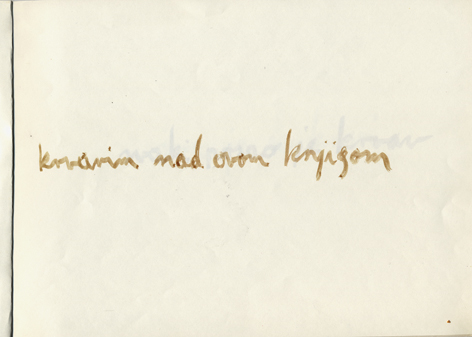 krvarim nad ovom knjigom